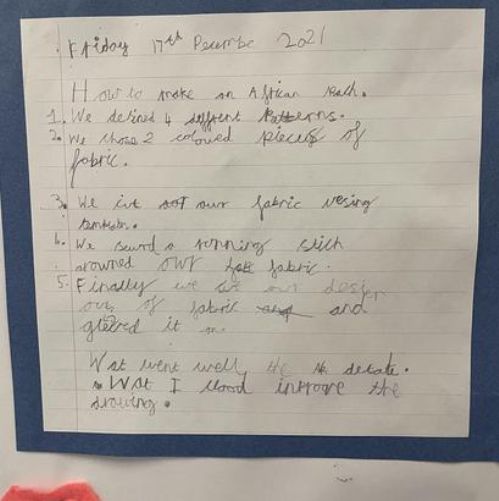 Friday 17th Decembe 2021
How to make an African Patch.
1. We desined 4 diffrent Patterns.
2. We chose 2 coloured pieces of
fabric.
3. We cut out our fabric using
4. We sewd a running stich
arowned our fabric.
5. Finally we cut our design
out of fabric and
glued it on.
Wat went well, the detale.
Wat I could improve the
drawing.